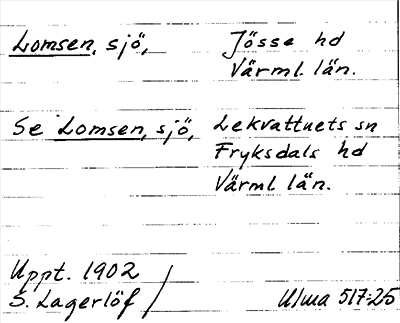 Lomsen, sjö, Jösse hd
Värml. län.
Se Lomsen, sjö, Lekvattnets sn
Fryksdals hd
Värml län.
Uppt. 1902
S. Lagerlöf
Ulma 517:25